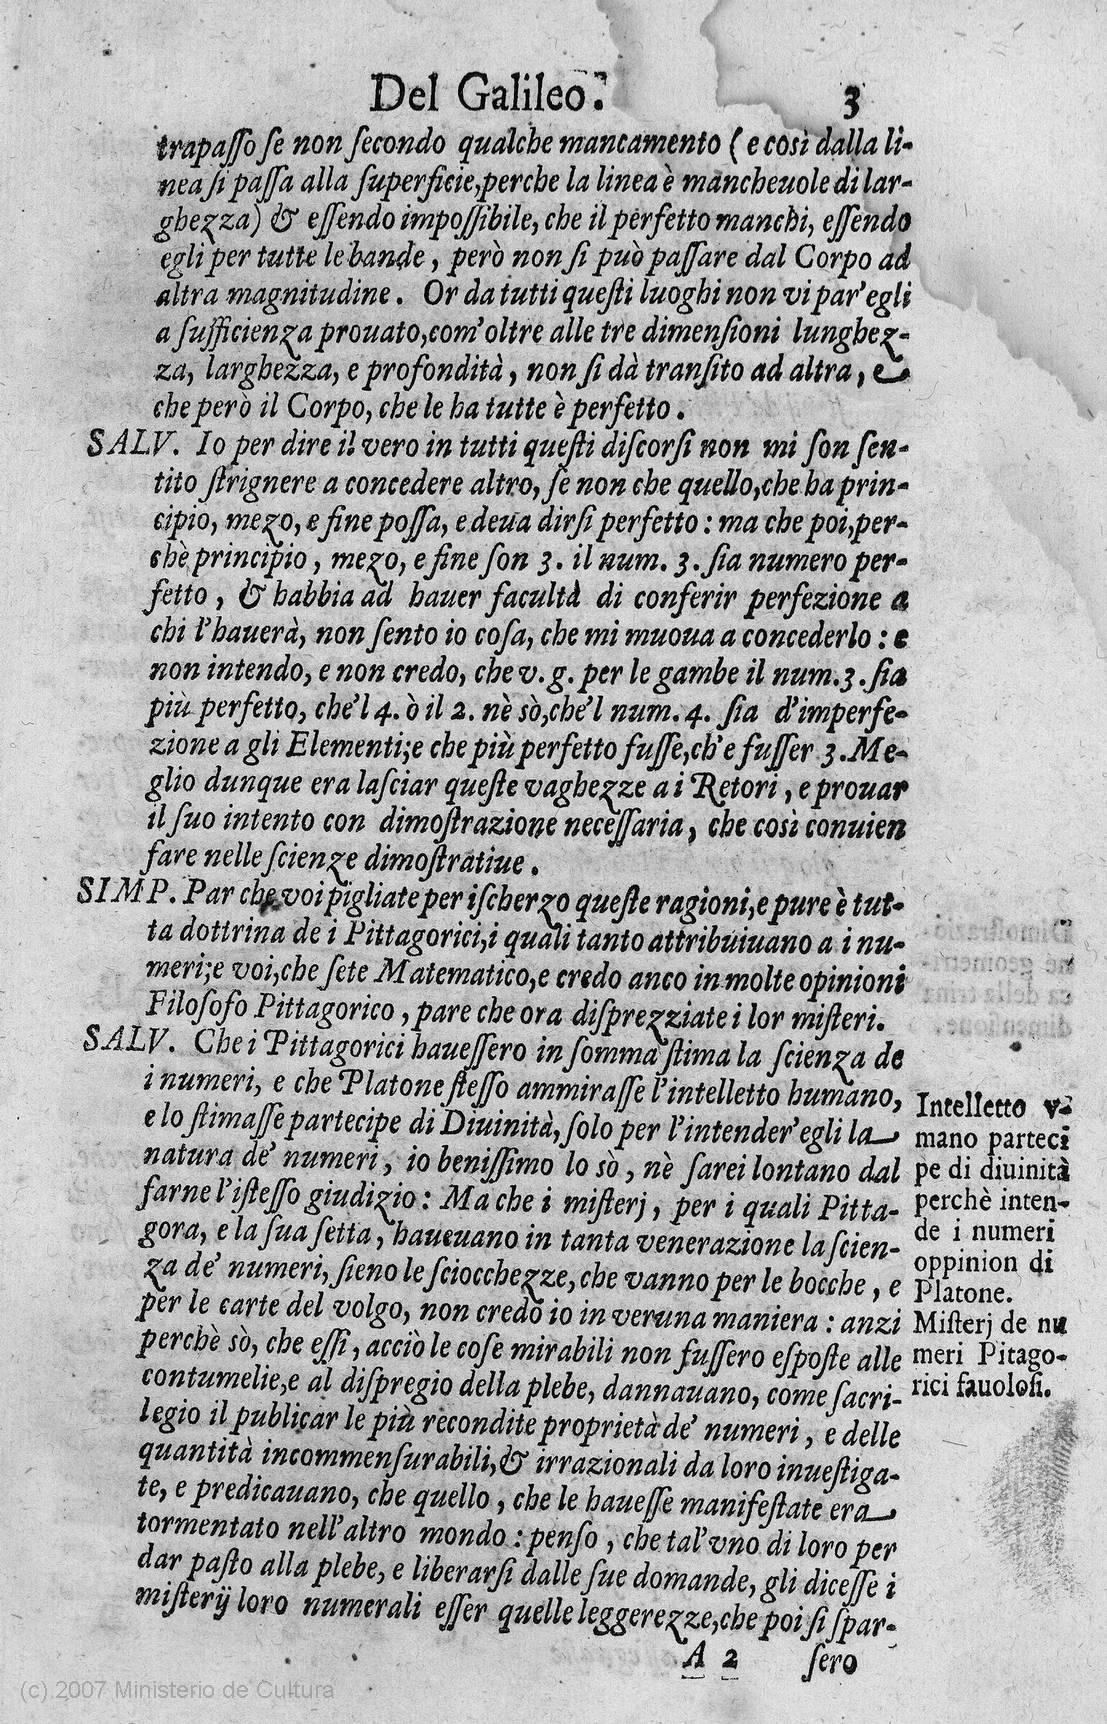 Del Galileo. 3
trapaſſo ſe non ſecondo qualche mancamento (e così dalla li-
nea ſi paſſa alla ſuperficie, perche la linea è mancheuole di lar-
ghezza) & eſſendo impoſſibile, che il perfetto manchi, eſſendo
egli per tutte le bande, però non ſi può paſſare dal Corpo ad
altra magnitudine. Or da tutti queſti luoghi non vi par'egli
a ſufficienza prouato, com'oltre alle tre dimenſioni lunghez-
za, larghezza, e profondità, non ſi dà tranſito ad altra, e
che però il Corpo, che le ha tutte è perfetto.
SALV. Io per dire il vero in tutti queſti diſcorſi non mi ſon ſen-
tito ſtrignere a concedere altro, ſe non che quello, che ha prin-
cipio, mezo, e fine poſſa, e deua dirſi perfetto: ma che poi, per-
chè principio, mezo, e fine ſon 3. il num. 3. ſia numero per-
fetto, & habbia ad hauer facultà di conferir perfezione a
chi l'hauerà, non ſento io coſa, che mi muoua a concederlo: e
non intendo, e non credo, che v. g. per le gambe il num. 3. ſia
più perfetto, che'l 4. ò il 2. nè sò, che'l num. 4. ſia d'imperfe-
zione a gli Elementi; e che più perfetto fuſſe, ch'e fuſſer 3. Me-
glio dunque era laſciar queſte vaghezze a i Retori, e prouar
il ſuo intento con dimoſtrazione neceſſaria, che così conuien
fare nelle ſcienze dimoſtratiue.
SIMP. Par che voi pigliate per iſcherzo queſte ragioni, e pure è tut-
ta dottrina de i Pittagorici, i quali tanto attribuiuano a i nu-
meri; e voi, che ſete Matematico, e credo anco in molte opinioni
Filoſofo Pittagorico, pare che ora diſprezziate i lor miſteri.
SALV. Che i Pittagorici haueſſero in ſomma ſtima la ſcienza de
i numeri, e che Platone ſteſſo ammiraſſe l'intelletto humano,
e lo ſtimaſſe partecipe di Diuinità, ſolo per l'intender'egli la
natura de' numeri, io beniſſimo lo sò, nè ſarei lontano dal
farne l'iſteſſo giudizio: Ma che i miſterj, per i quali Pitta-
gora, e la ſua ſetta, haueuano in tanta venerazione la ſcien-
za de' numeri, ſieno le ſciocchezze, che vanno per le bocche, e
per le carte del volgo, non credo io in veruna maniera: anzi
perchè sò, che eſſi, acciò le coſe mirabili non fuſſero eſpoſte alle
contumelie, e al diſpregio della plebe, dannauano, come ſacri-
legio il publicar le più recondite proprietà de' numeri, e delle
quantità incommenſurabili, & irrazionali da loro inueſtiga-
te, e predicauano, che quello, che le haueſſe manifeſtate era
tormentato nell'altro mondo: penſo, che tal'vno di loro per
dar paſto alla plebe, e liberarſi dalle ſue domande, gli diceſſe i
miſterij loro numerali eſſer quelle leggerezze, che poi ſi ſpar-
A 2 ſero
Intelletto v-
mano parteci
pe di diuinità
perchè inten-
de i numeri
oppinion di
Platone.
Miſterj de nu
meri Pitago-
rici fauoloſi.
(c) 2007 Ministerio de Cultura